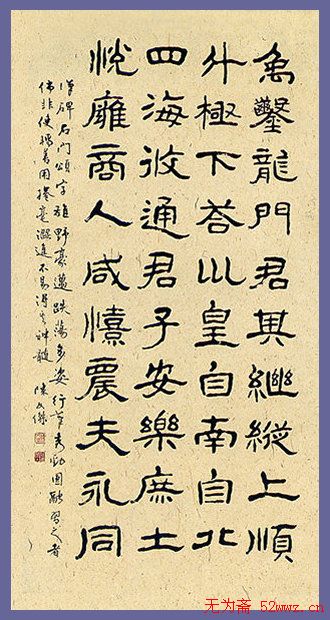 禹鑿龍門君其繼縱上順
斗極下荅巛皇自南自北
四海攸通君子安樂庶士
悅廱商人咸憘農夫永同
漢碑石門頌字雄野豪邁跌蕩多姿行筆秀勁圓融習之者
非使用捲毫澀進不易得其神髓
无为斋 52wwz.cn